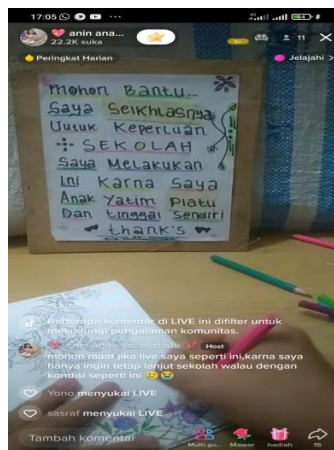 17:05
anin ana...
22.2K suka
11
X
Peringkat Harian
Jelajahi >
Mohon Bantu..
Saya Seikhlasnya
Untuk Keperluan
SEKOLAH
Saya Melakukan
Ini Karna Saya
Anak Yatim Piatu
Dan tinggal Sendiri
thank's
Beberapa komentar di LIVE ini difilter untuk
melindungi pengalaman komunitas.
Host
mohon maaf jika live saya seperti ini,karna saya
hanya ingin tetap lanjut sekolah walau dengan
kondisi seperti ini
Yono menyukai LIVE
sasraf menyukai LIVE
Tambah komentar
Multi-gu...
Mawar
hadiah
15